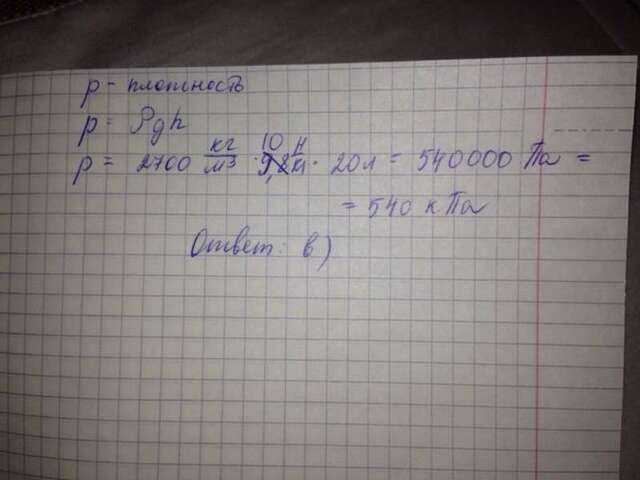 p - плотность
p = ρgh
p = 2700 кг/м³ · 10 Н/кг · 20м = 540000 Па =
= 540 кПа
Ответ: в)